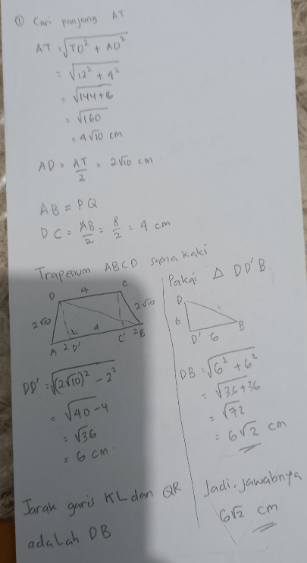 ① Cari panjang AT
AT = √TO² + AO²
= √12² + 4²
= √144+16
= √160
= 4√10 cm
AD = AT/2 = 2√10 cm
AB = PQ
DC = AB/2 = 8/2 = 4 cm
Trapesium ABCD sama kaki
D 4 C
2√10 2√10
A 2 D' 4 C' 2 B
DD' = √(2√10)² - 2²
= √40-4
= √36
= 6 cm
Pakai △ DD'B
D
6
D' 6 B
DB = √6² + 6²
= √36+36
= √72
= 6√2 cm
Jarak garis KL dan QR
adalah DB
Jadi, jawabnya
6√2 cm